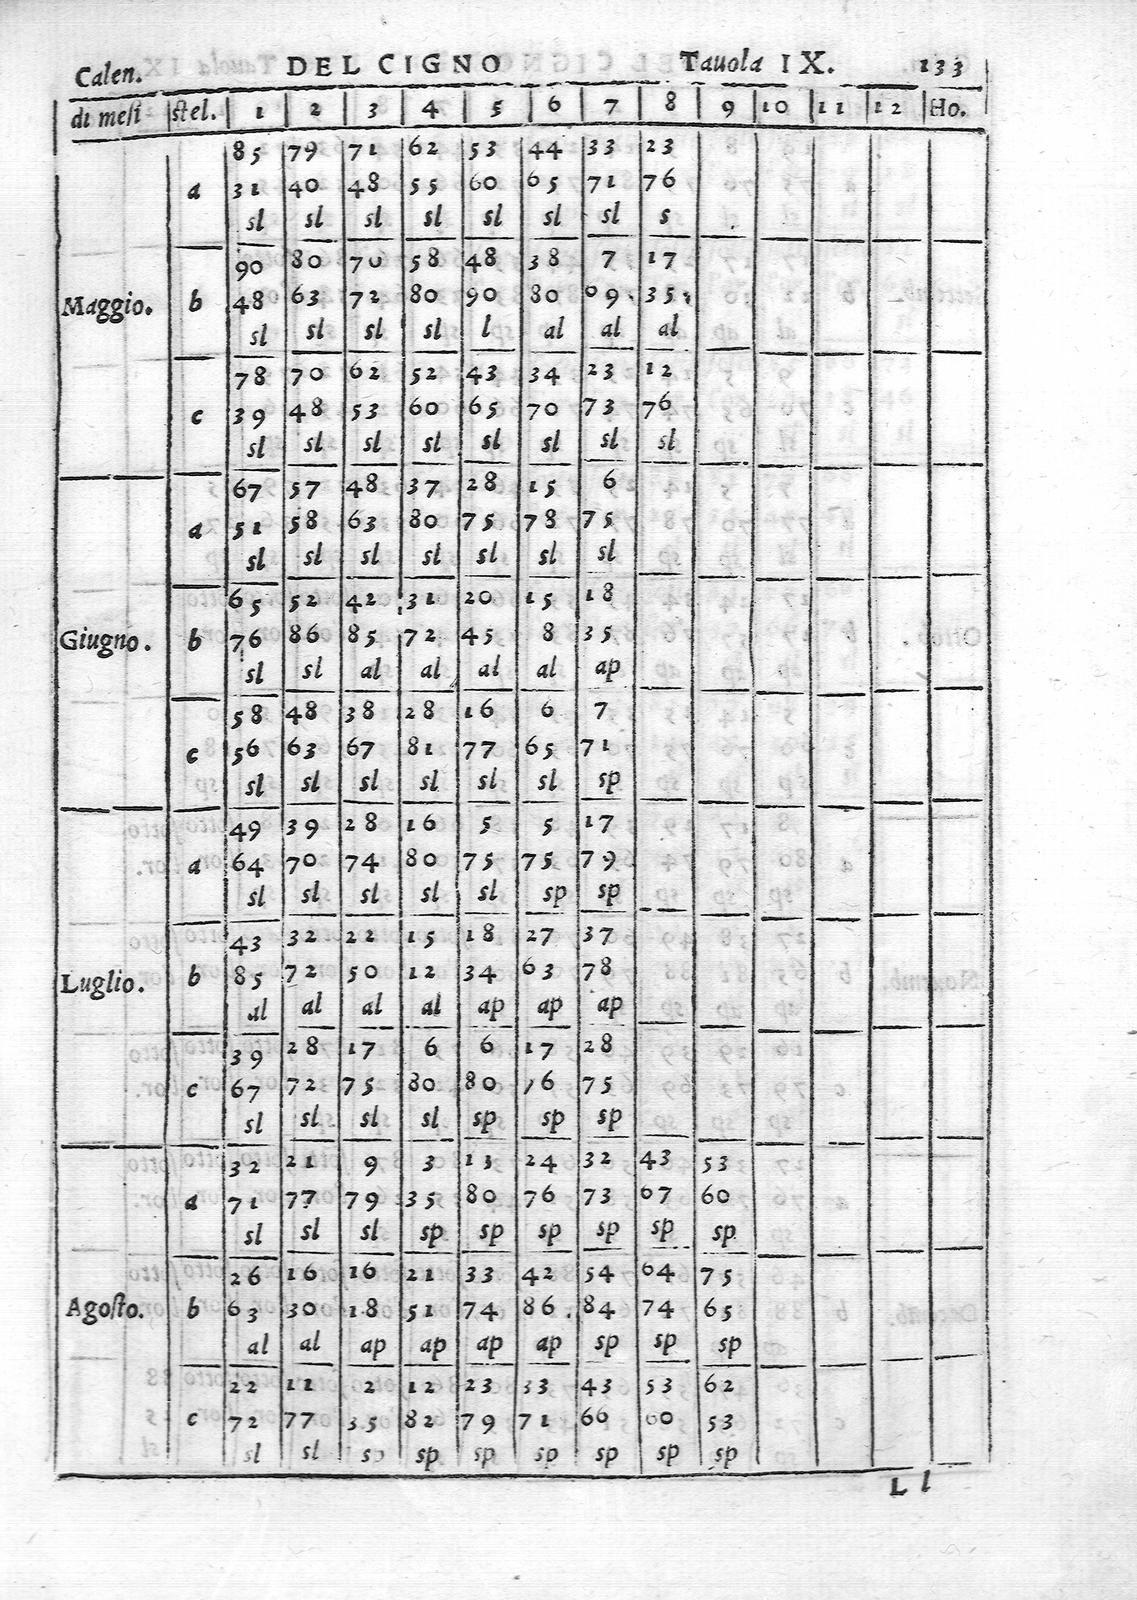 Calen. DEL CIGNO Tauola IX. 133
di mesi stel. 1 2 3 4 5 6 7 8 9 10 11 12 Ho.
85 79 71 62 53 44 33 23
a 31 40 48 55 60 65 71 76
sl sl sl sl sl sl sl s
90 80 70 58 48 38 7 17
Maggio. b 48 63 72 80 90 80 09. 35
sl sl sl sl l al al al
78 70 62 52 43 34 23 12
c 39 48 53 60 65 70 73 76
sl sl sl sl sl sl sl sl
67 57 48 37 28 15 6
a 51 58 63 80 75 78 75
sl sl sl sl sl sl sl
65 52 42 31 20 15 18
Giugno. b 76 86 85 72 45 8 35
sl sl al al al al ap
58 48 38 28 16 6 7
c 56 63 67 81 77 65 71
sl sl sl sl sl sl sp
49 39 28 16 5 5 17
a 64 70 74 80 75 75 79
sl sl sl sl sl sp sp
43 32 22 15 18 27 37
Luglio. b 85 72 50 12 34 63 78
al al al al ap ap ap
39 28 17 6 6 17 28
c 67 72 75 80 80 76 75
sl sl sl sl sp sp sp
32 21 9 3 13 24 32 43 53
a 71 77 79 35 80 76 73 67 60
sl sl sl sp sp sp sp sp sp
26 16 16 21 33 42 54 64 75
Agosto. b 63 30 18 51 74 86 84 74 65
al al ap ap ap ap sp sp sp
22 11 2 12 23 33 43 53 62
c 72 77 35 82 79 71 66 60 53
sl sl sp sp sp sp sp sp
L l